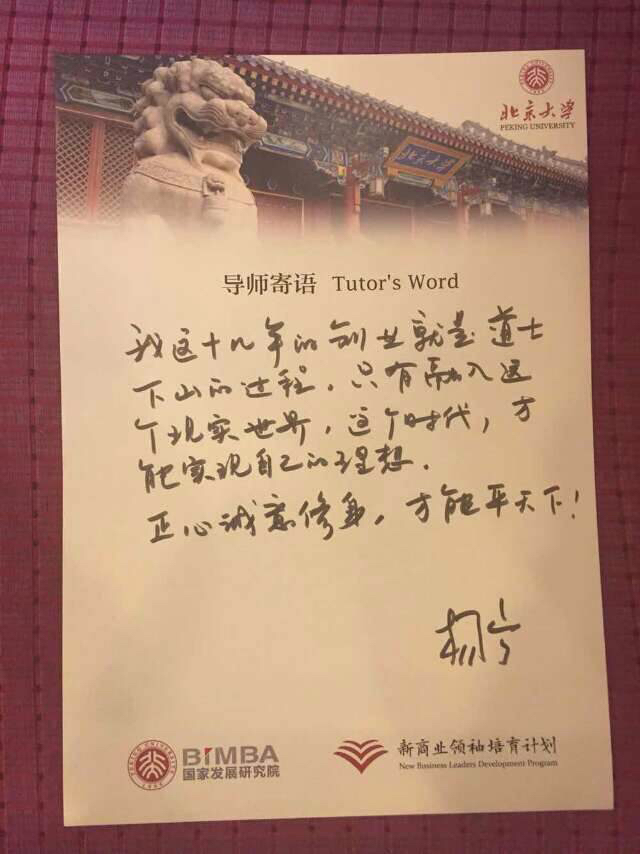 北京大学
PEKING UNIVERSITY
北京大学
导师寄语 Tutor's Word
我这十几年的创业就是道士
下山的过程，只有融入这
个现实世界，这个时代，方
能实现自己的理想.
正心诚意修身，方能平天下！
BiMBA
国家发展研究院
新商业领袖培育计划
New Business Leaders Development Program